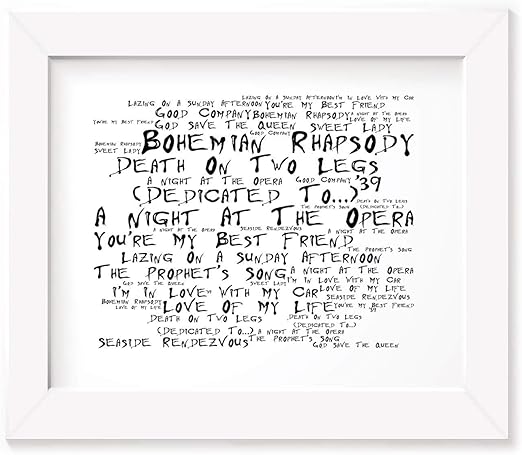 LAZING ON A SUNDAY AFTERNOON I'M IN LOVE WITH MY CAR
LAZING ON A SUNDAY AFTERNOON YOU'RE MY BEST FRIEND
GOOD COMPANY BOHEMIAN RHAPSODY A NIGHT AT THE OPERA
YOU'RE MY BEST FRIEND GOD SAVE THE QUEEN SWEET LADY LOVE OF MY LIFE
BOHEMIAN RHAPSODY GOOD COMPANY
SWEET LADY BOHEMIAN RHAPSODY
DEATH ON TWO LEGS
A NIGHT AT THE OPERA GOOD COMPANY '39
(DEDICATED TO...) DEATH ON TWO LEGS
THE PROPHET'S SONG (DEDICATED TO...)
A NIGHT AT THE OPERA
A NIGHT AT THE OPERA SEASIDE RENDEZVOUS A NIGHT AT THE OPERA
YOU'RE MY BEST FRIEND
LAZING ON A SUNDAY AFTERNOON THE PROPHET'S SONG
THE PROPHET'S SONG A NIGHT AT THE OPERA
GOD SAVE THE QUEEN SWEET LADY I'M IN LOVE WITH MY CAR
I'M IN LOVE WITH MY CAR LOVE OF MY LIFE
SEASIDE RENDEZVOUS
BOHEMIAN RHAPSODY LOVE OF MY LIFE YOU'RE MY BEST FRIEND
LOVE OF MY LIFE '39
DEATH ON TWO LEGS DEATH ON TWO LEGS
(DEDICATED TO...) A NIGHT AT THE OPERA (DEDICATED TO...)
SEASIDE RENDEZVOUS THE PROPHET'S SONG
GOD SAVE THE QUEEN